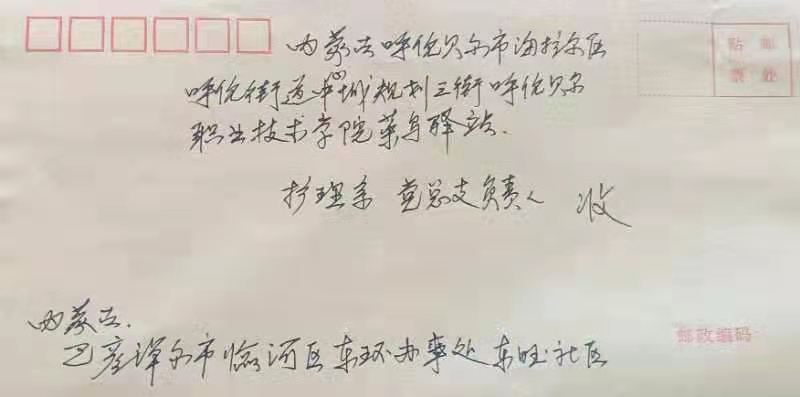 内蒙古呼伦贝尔市海拉尔区
贴 邮
票 处
呼伦街道中城规划三街呼伦贝尔
职业技术学院菜鸟驿站.
护理系 党总支负责人 收
内蒙古.
巴彦淖尔市临河区东环办事处东旺社区
邮政编码